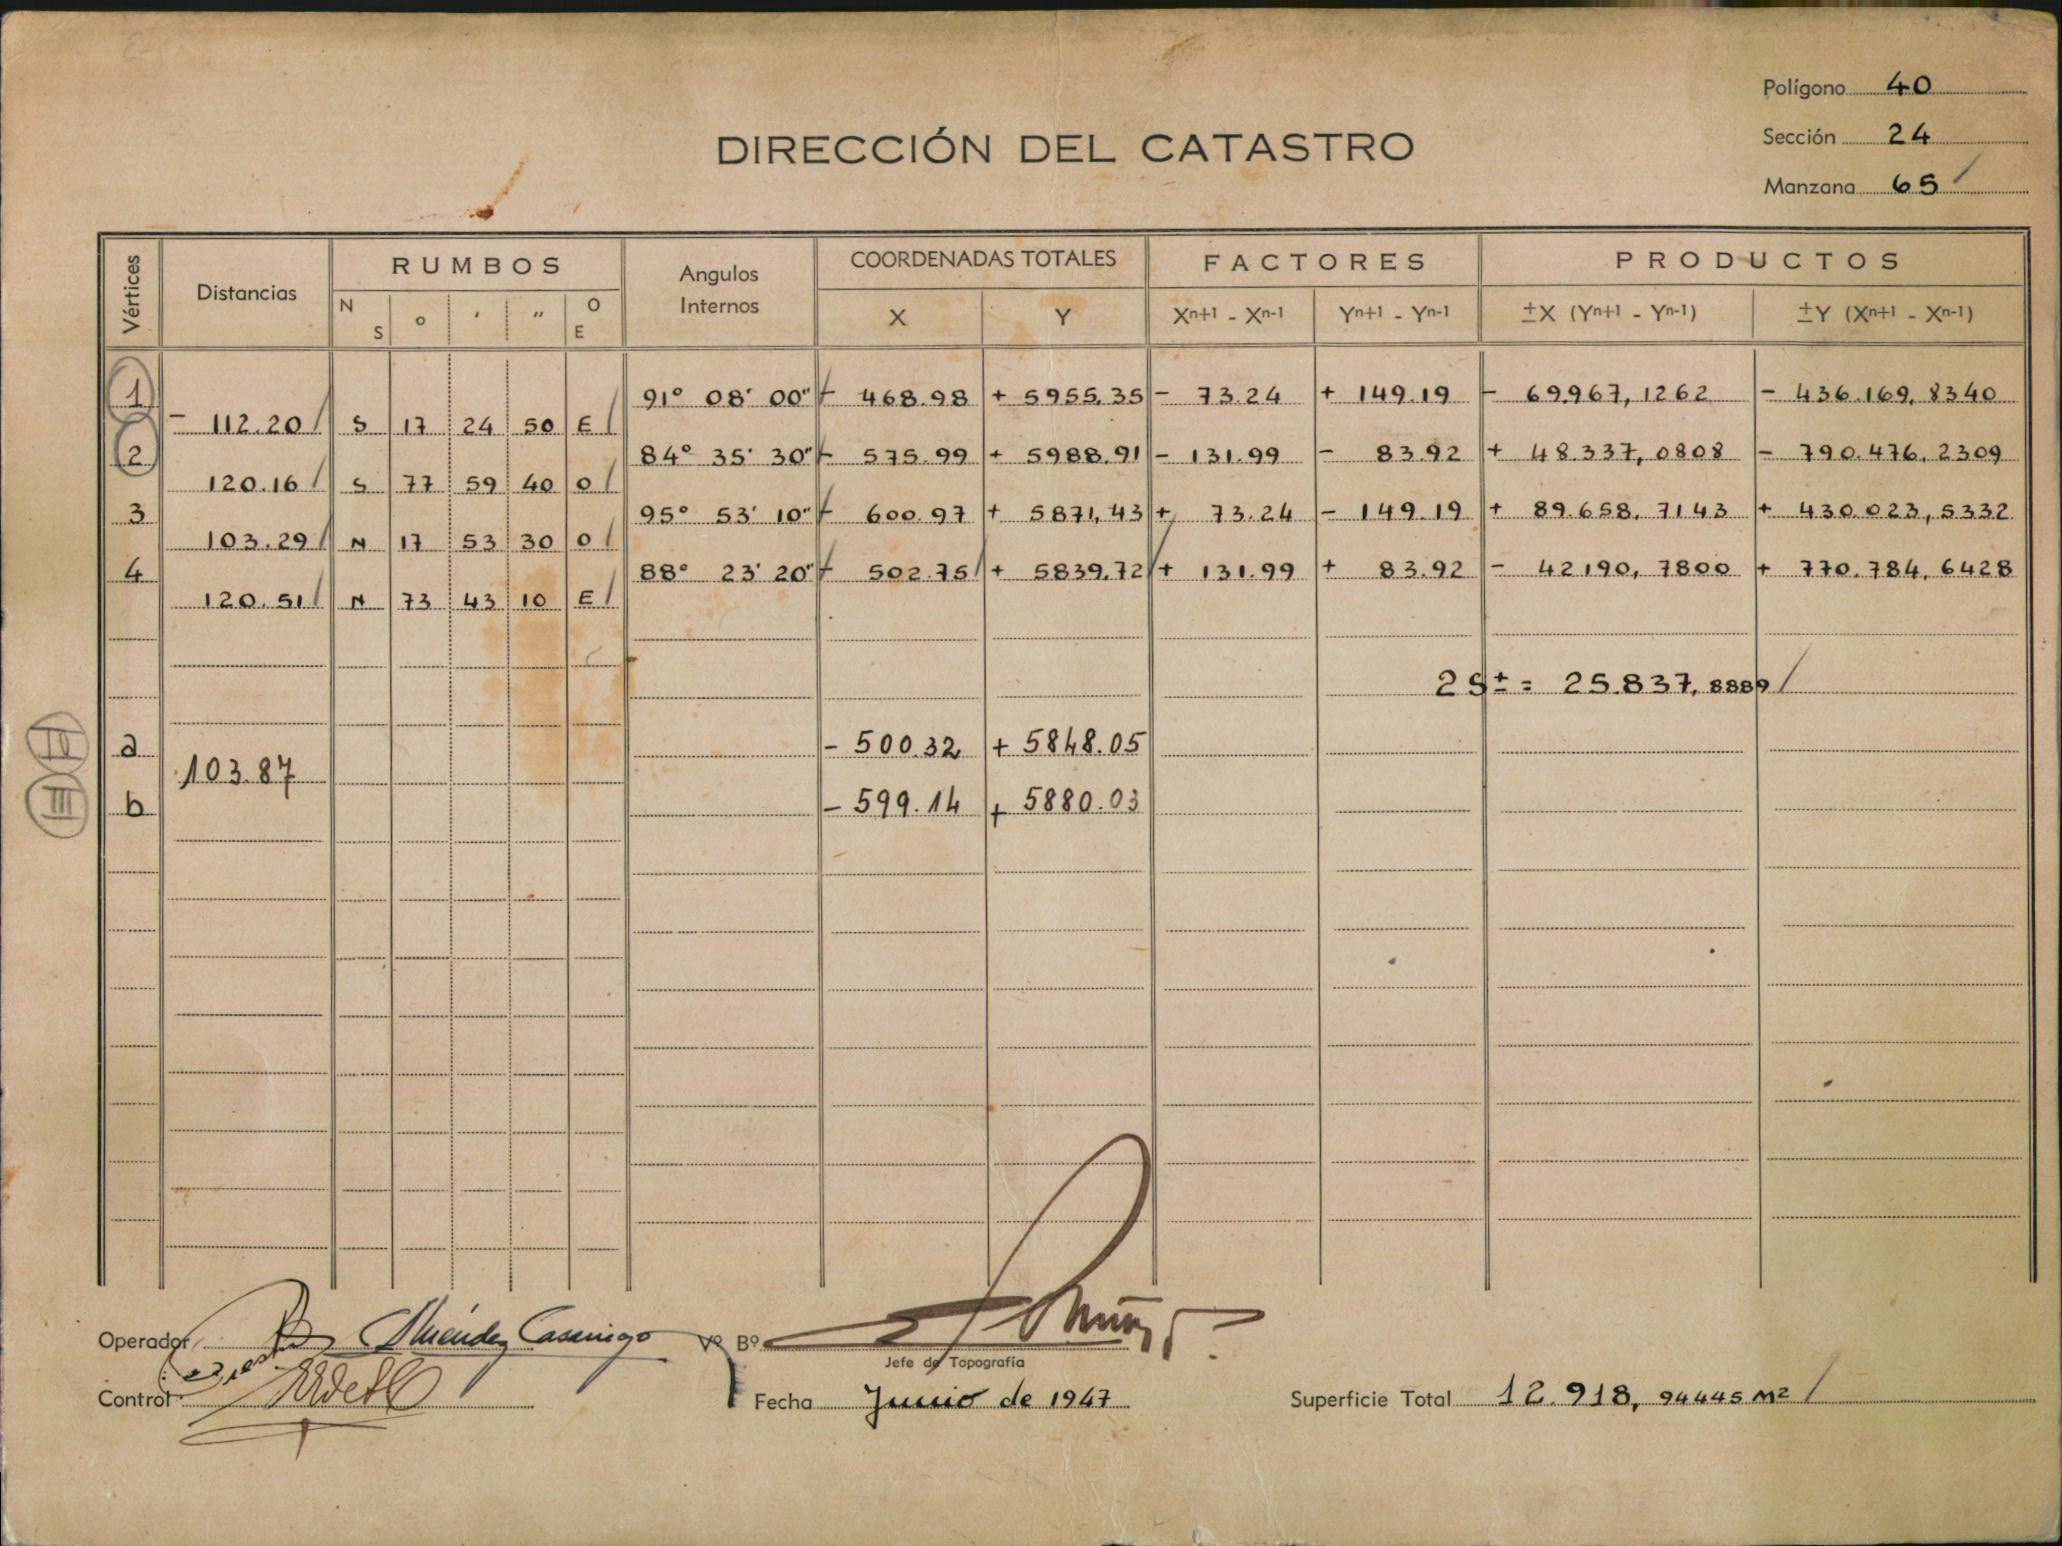 Polígono 40
DIRECCIÓN DEL CATASTRO
Sección 24
Manzana 65
Vértices Distancias RUMBOS N S o ' " O E Angulos Internos COORDENADAS TOTALES X Y FACTORES Xn+1 - Xn-1 Yn+1 - Yn-1 PRODUCTOS ±X (Yn+1 - Yn-1) ±Y (Xn+1 - Xn-1)
1 91° 08' 00" - 468.98 + 5955,35 - 73.24 + 149.19 - 69.967,1262 - 436.169,8340
- 112.20 S 17 24 50 E
2 84° 35' 30" - 575.99 + 5988.91 - 131.99 - 83.92 + 48.337,0808 - 790.476,2309
120.16 S 77 59 40 O
3 95° 53' 10" - 600.97 + 5871,43 + 73.24 - 149.19 + 89.658,7143 + 430.023,5332
103.29 N 17 53 30 O
4 88° 23' 20" - 502.75 + 5839,72 + 131.99 + 83.92 - 42190,7800 + 770.784,6428
120.51 N 73 43 10 E
2S± = 25.837,8889
IV a - 500.32 + 5848.05
103.87
III b - 599.14 + 5880.03
Operador Méndez Casariego Vº Bº Muñoz
Jefe de Topografía
Control Fecha Junio de 1947 Superficie Total 12.918,94445 M2